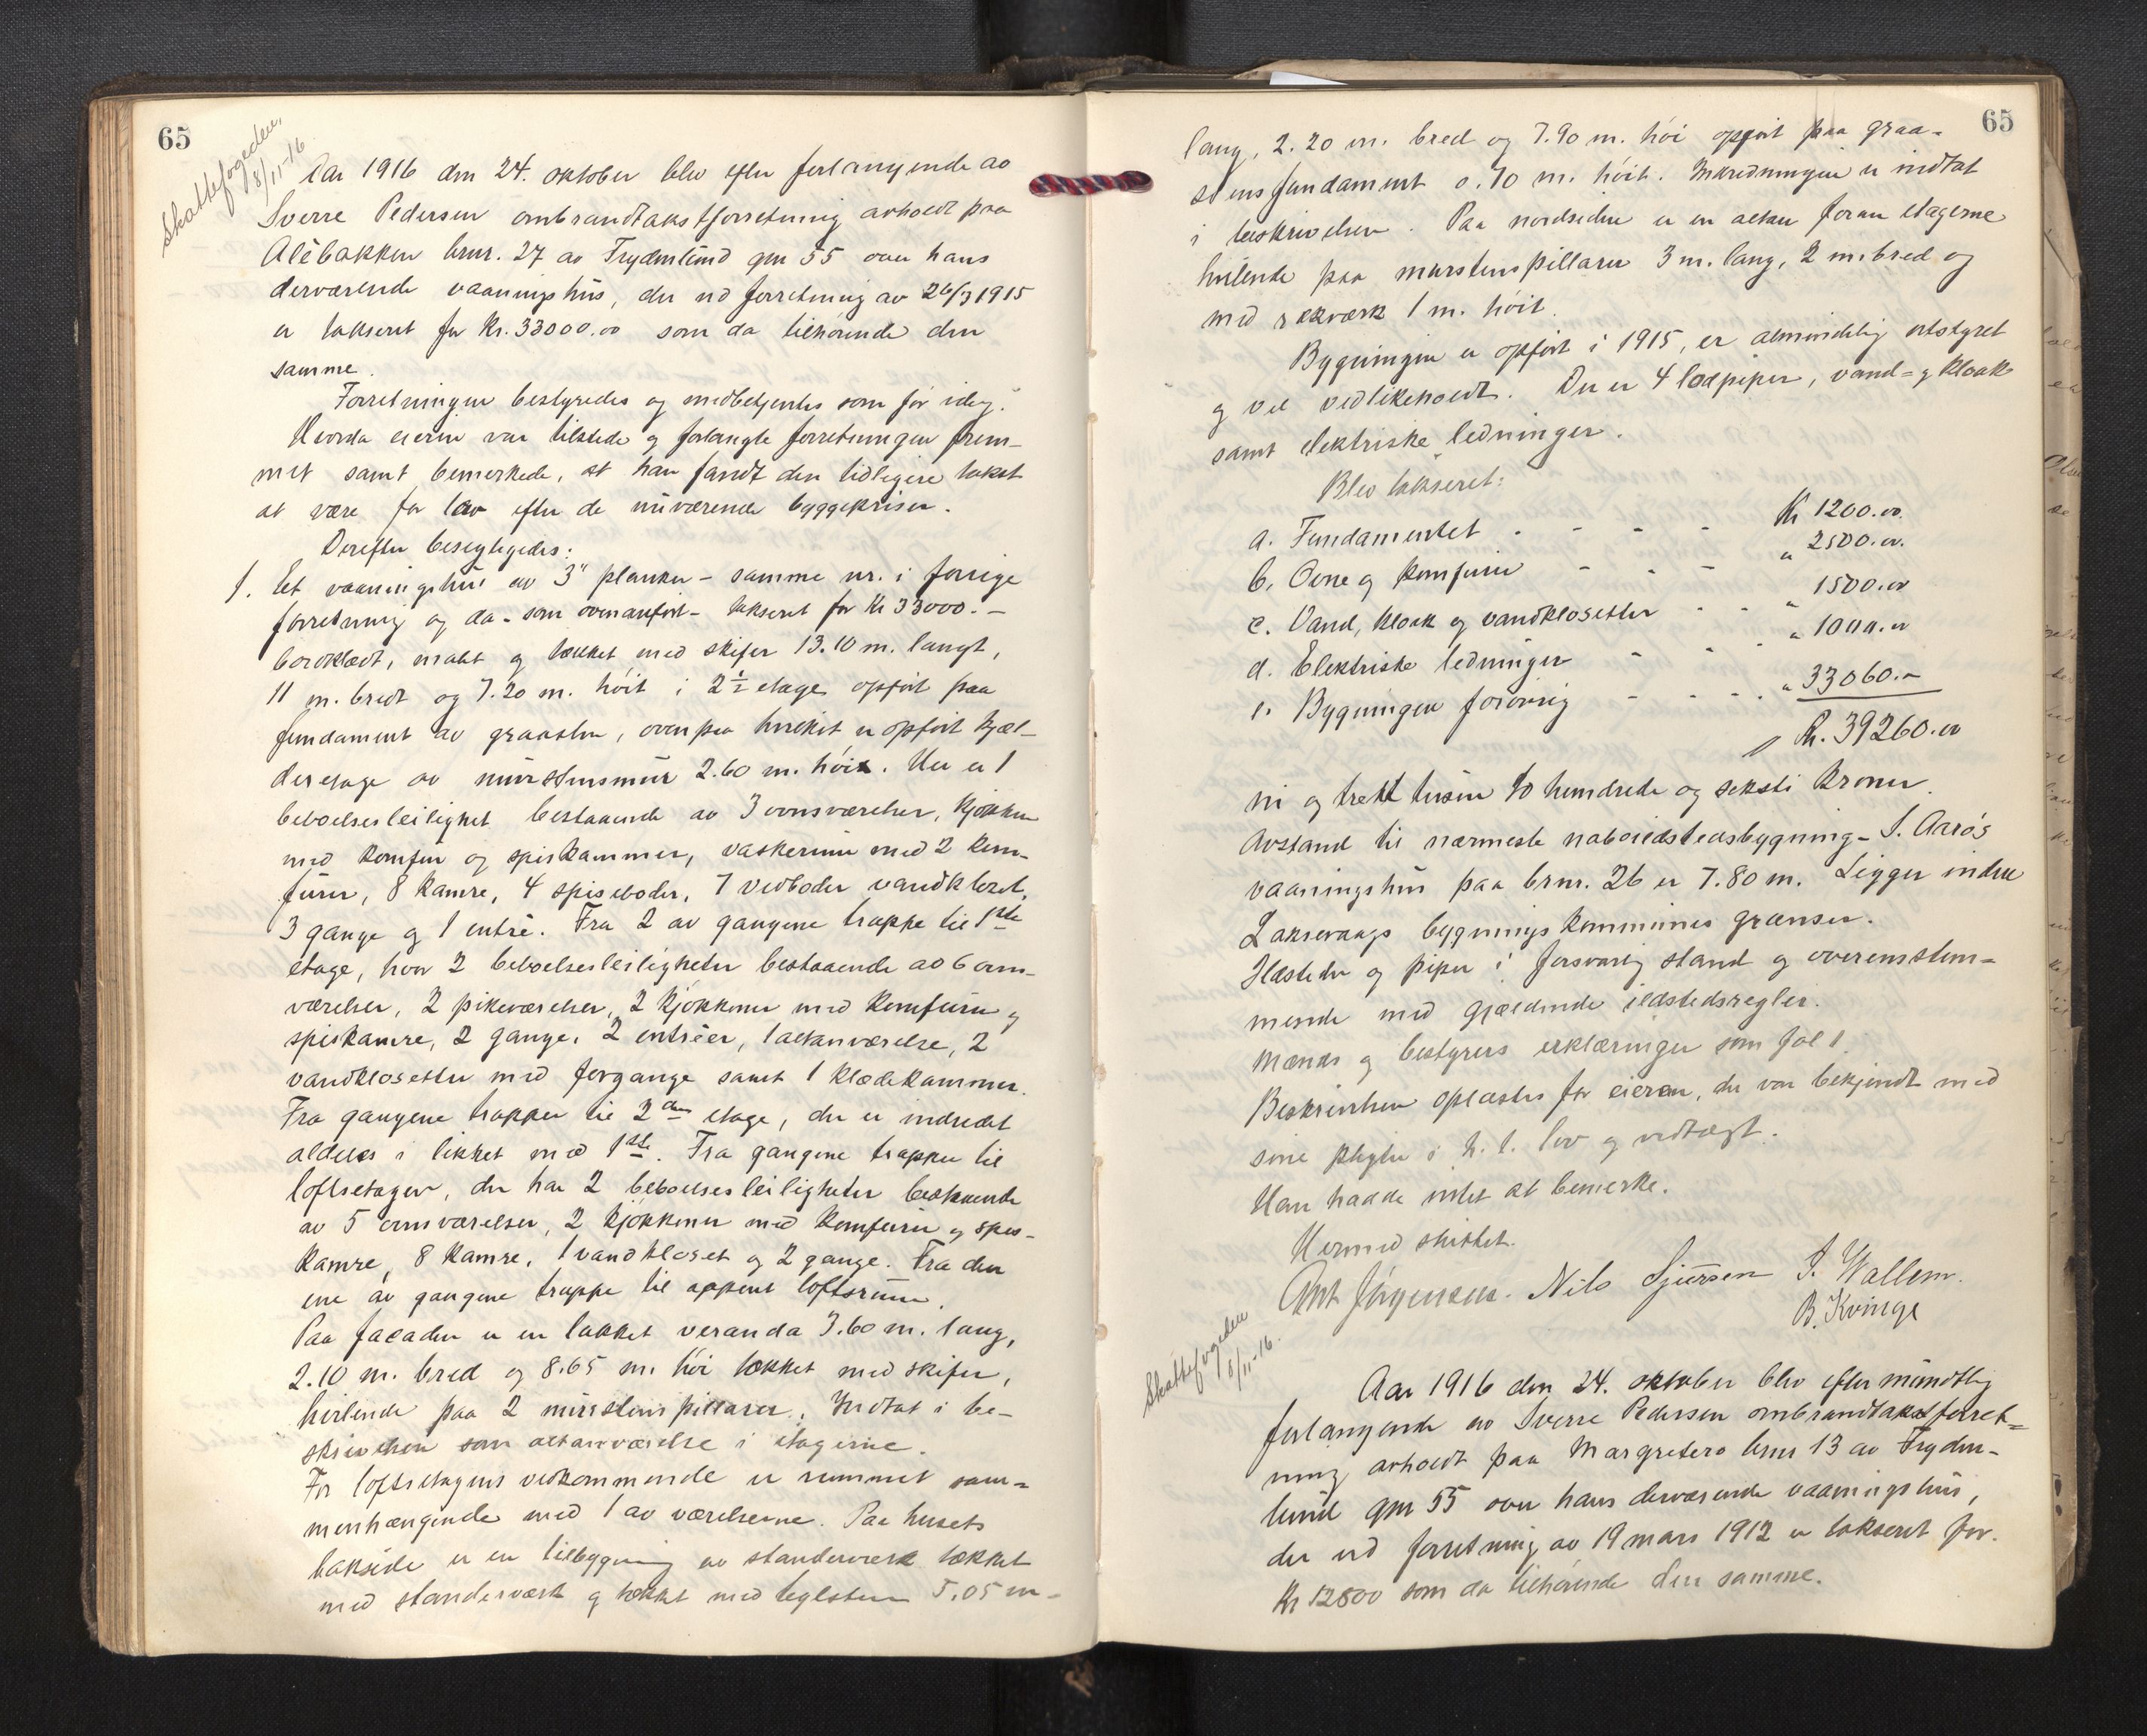 65
Skattefogeden,
18/11-16
Aar 1916 den 24. oktober blev efter forlangende av
Sverre Pedersen ombrandtakstforretning avholdt paa
Alébakken brnr. 27 av Frydenlund gnr 55 over hans
derværende vaaningshus, der ved forretning av 26/3 1915
er takseret for Kr. 33000.00 som da tilhørende den
samme.
Forretningen bestyredes og medbetjentes som før idag.
Hvorda eieren var tilstede og forlangte forretningen frem-
met samt bemerkede, at han fandt den tidligere takst
at være for lav efter de nuværende byggepriser.
Derefter besigtigedes:
1. Et vaaningshus av 3" planker - samme nr. i forrige
forretning og da - som ovenanført - takseret for Kr 33000.-
bordklædt, malt og tækket med skifer 13.10 m. langt,
11 m. bredt og 7.20 m. høit i 2½ etage opført paa
fundament av graasten, ovenpaa hvilket er opført kjæl-
deretage av murstensmur 2.60 m. høi. Her er 1
beboelsesleilighet bestaaende av 3 ovnsværelser, kjøkken
med komfur og spiskammer, vaskerum med 2 kom-
furer, 8 kamre, 4 spiseboder, 7 vedboder vandkloset,
3 gange og 1 entré. Fra 2 av gangene trappe til 1ste
etage, hvor 2 beboelsesleiligheter bestaaende av 6 ovns-
værelser, 2 pikeværelser, 2 kjøkkener med komfurer og
spiskamre, 2 gange, 2 entréer, 1 altanværelse, 2
vandklosetter med forgange samt 1 klædekammer.
Fra gangene trapper til 2den etage, der er indredet
aldeles i likhet med 1ste. Fra gangene trapper til
loftsetagen, der har 2 beboelsesleiligheter bestaaende
av 5 ovnsværelser, 2 kjøkkener med komfurer og spis-
kamre, 8 kamre, 1 vandkloset og 2 gange. Fra den
ene av gangene trappe til appent loftsrum.
Paa facaden er en tækket veranda 3.60 m. lang,
2.10 m. bred og 8.65 m. høi tækket med skifer,
hvilende paa 2 murstenspillarer. Indtat i be-
skrivelsen som altanværelse i etagerne.
For loftsetagens vedkommende er rummet sam-
menhængende med 1 av værelserne. Paa husets
bakside er en tilbygning av standerverk tækket
med standerværk og tækket med teglsten 5.05 m-
65
lang, 2.20 m. bred og 7.90 m. høi opført paa graa-
stensfundament 0.70 m. høit. Indredningen er indtat
i beskrivelsen. Paa nordsiden er en altan foran etagerne
hvilende paa murstenspillarer 3 m. lang, 2 m. bred og
med rækværk 1 m. høit.
Bygningen er opført i 1915, er almindelig utstyret
og vel vedlikeholdt. Der er 4 lodpiper, vand- og kloak
samt elektriske ledninger.
Blev takseret:
a. Fundamentet - - - Kr 1200.00.
b. Ovne og komfurer - - - " 2500.00.
c. Vand, kloak og vandklosetter - - " 1500.00
d. Elektriske ledninger - - - " 1000.00
e. Bygningen forøvrig - - - " 33060.-
Kr. 39260.00
ni og tretti tusen to hundrede og seksti kroner.
Avstand til nærmeste naboildstedsbygning - S. Aarøs
vaaningshus paa brnr. 26 er 7.80 m. Ligger inden
Laksevaags bygningskommunes grænser.
Ildsteder og piper i forsvarlig stand og overensstem-
mende med gjældende ildstedsregler.
Mænds og bestyrers erklæringer som fol 1.
Beskrivelsen oplæstes for eieren, der var bekjendt med
sine pligter i h. t. lov og vedtægt.
Han hadde intet at bemerke.
Hermed sluttet.
Ant Jørgensen. Nils Sjursen I. Wallem.
B. Kvinge
Skattefogeden
18/11-16.
Aar 1916 den 24. oktober blev efter mundtlig
forlangende av Sverre Pedersen ombrandtakstforret-
ning avholdt paa Margretero brnr 13 av Fryden-
lund gnr 55 over hans derværende vaaningshus,
der ved forretning av 19 mars 1912 er takseret for.
Kr 12800 som da tilhørende den samme.